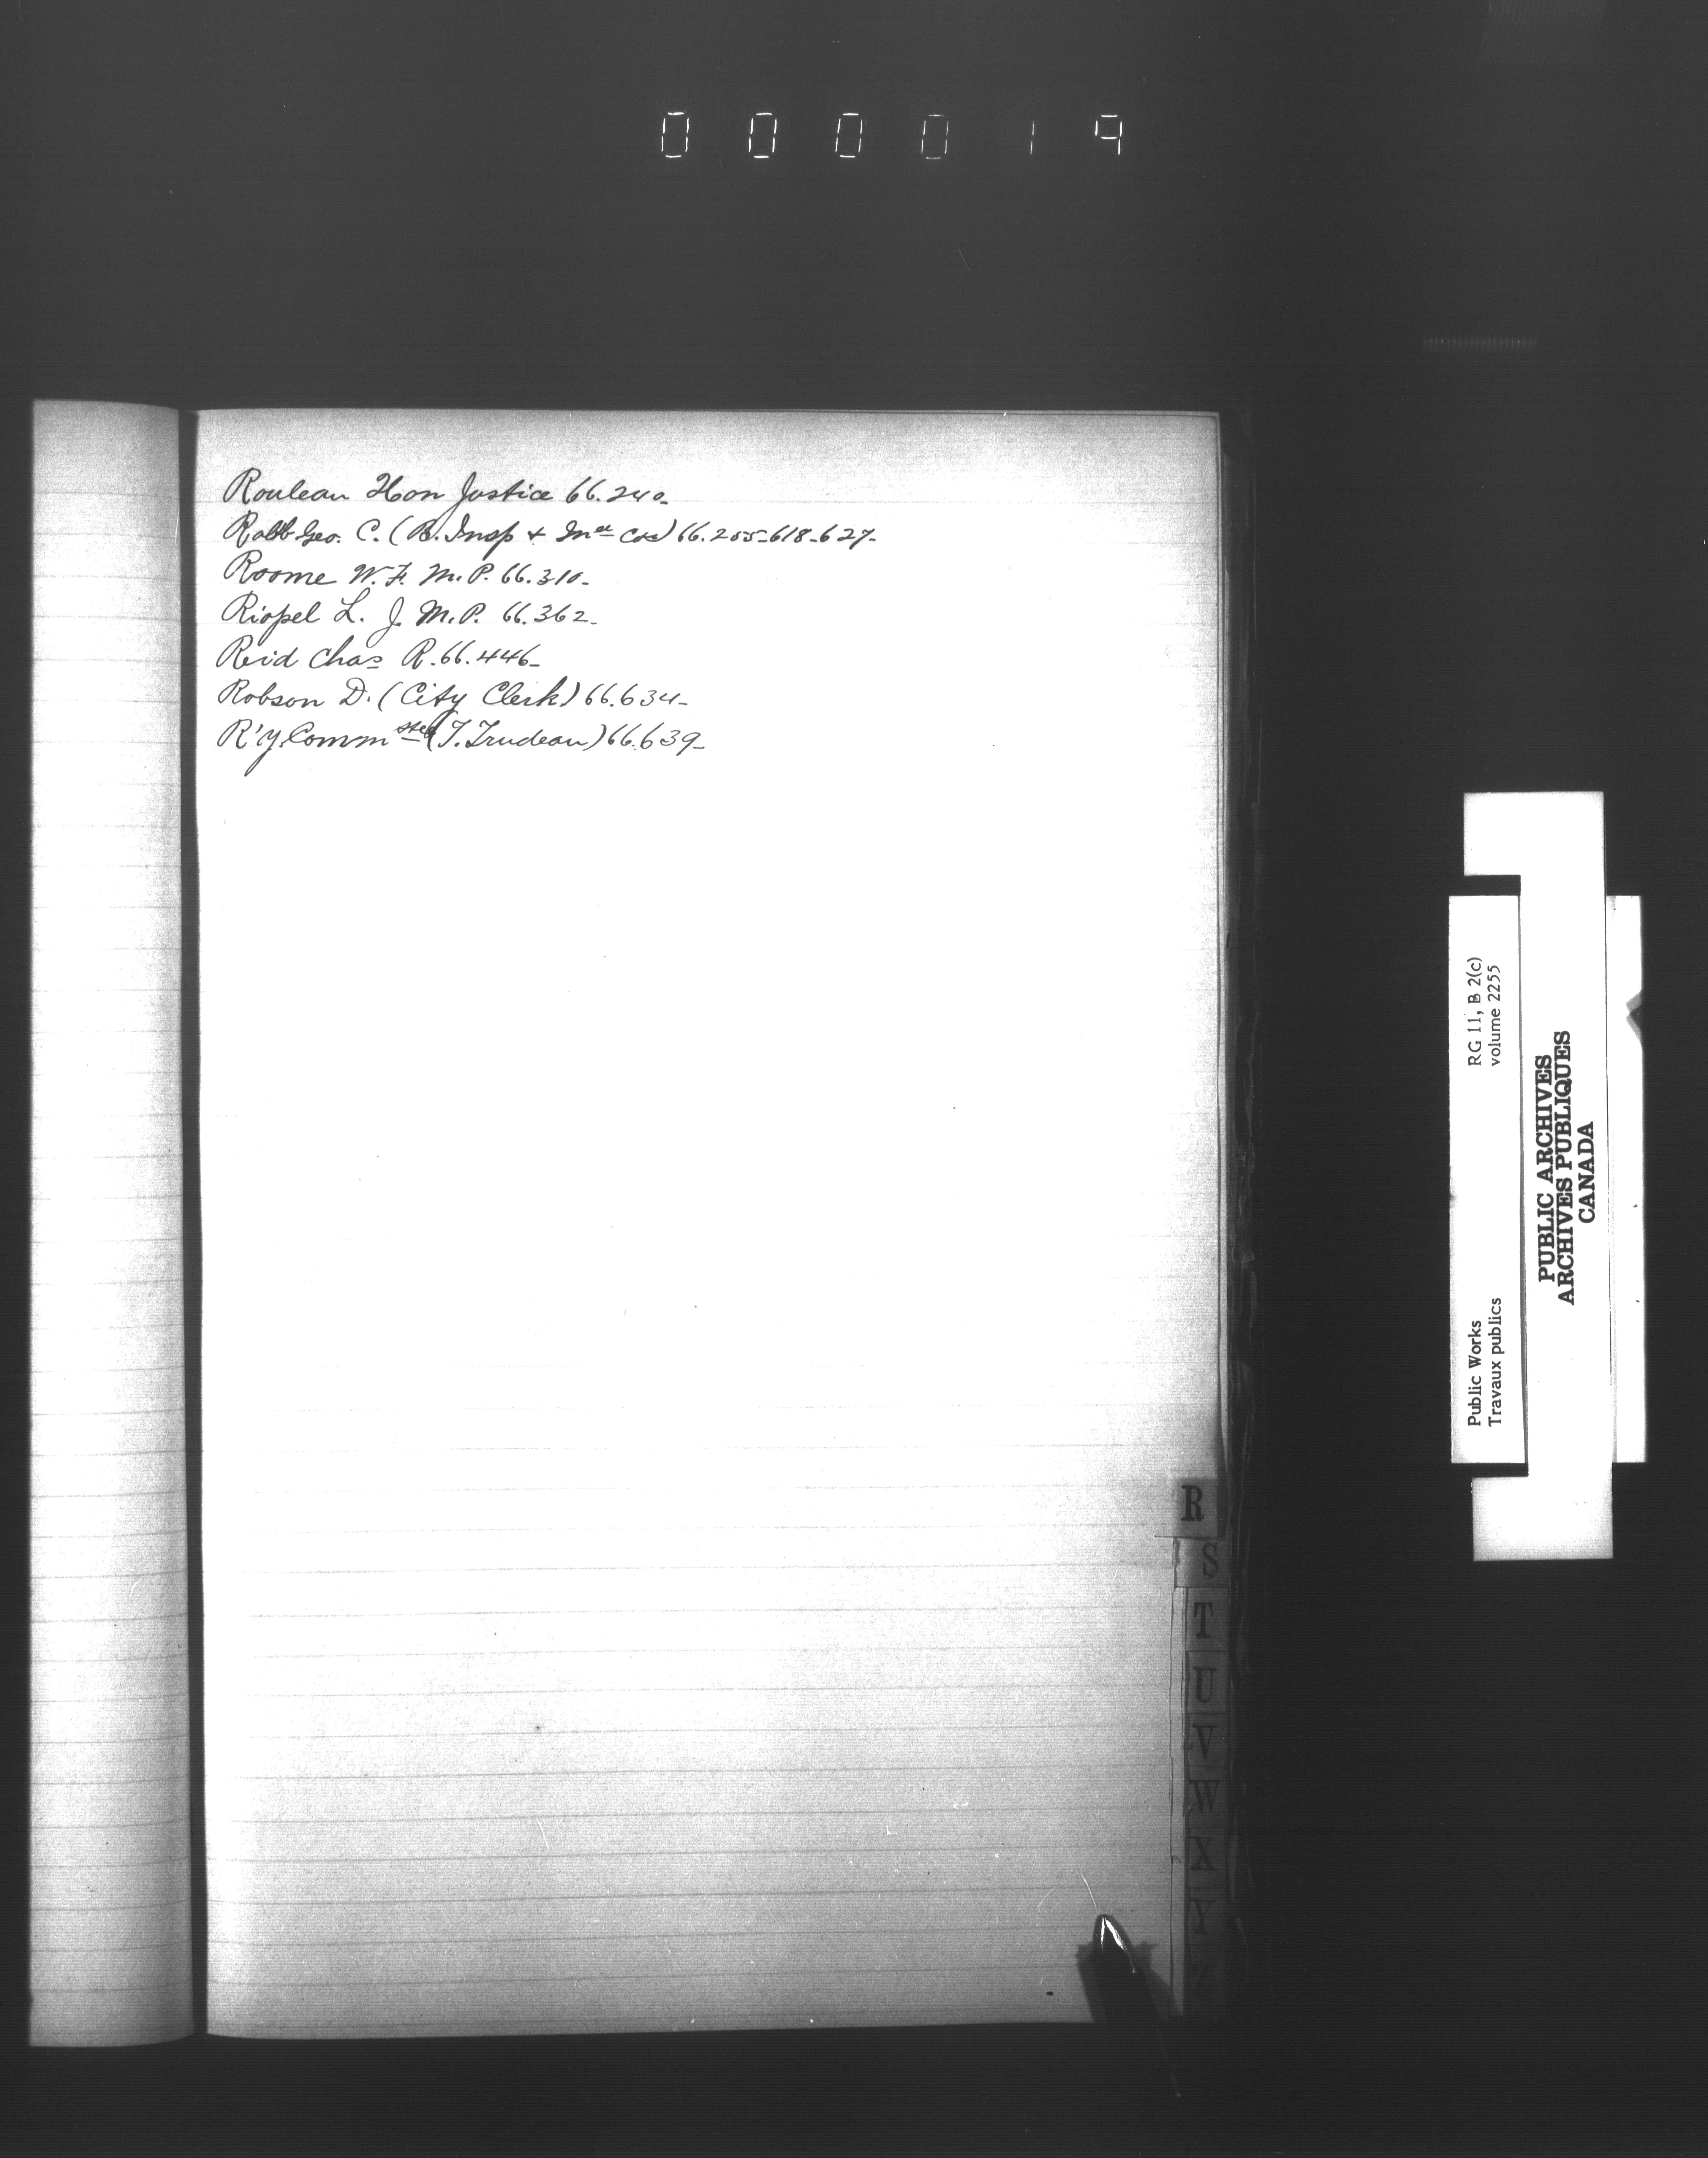 000019
Rouleau Hon Justice 66.240_
Robb Geo. C. (B. Insp & Ince Co) 66.255_618_627_
Roome W. F. M. P. 66.310_
Riopel L. J. M. P. 66.362_
Reid Chas R. 66.446_
Robson D. (City Clerk) 66.634_
R'y Comm (T. Trudeau) 66.639_
R
S
T
U
V
W
X
Y
Z
RG 11, B 2(c)
volume 2255
Public Works
Travaux publics
PUBLIC ARCHIVES
ARCHIVES PUBLIQUES
CANADA